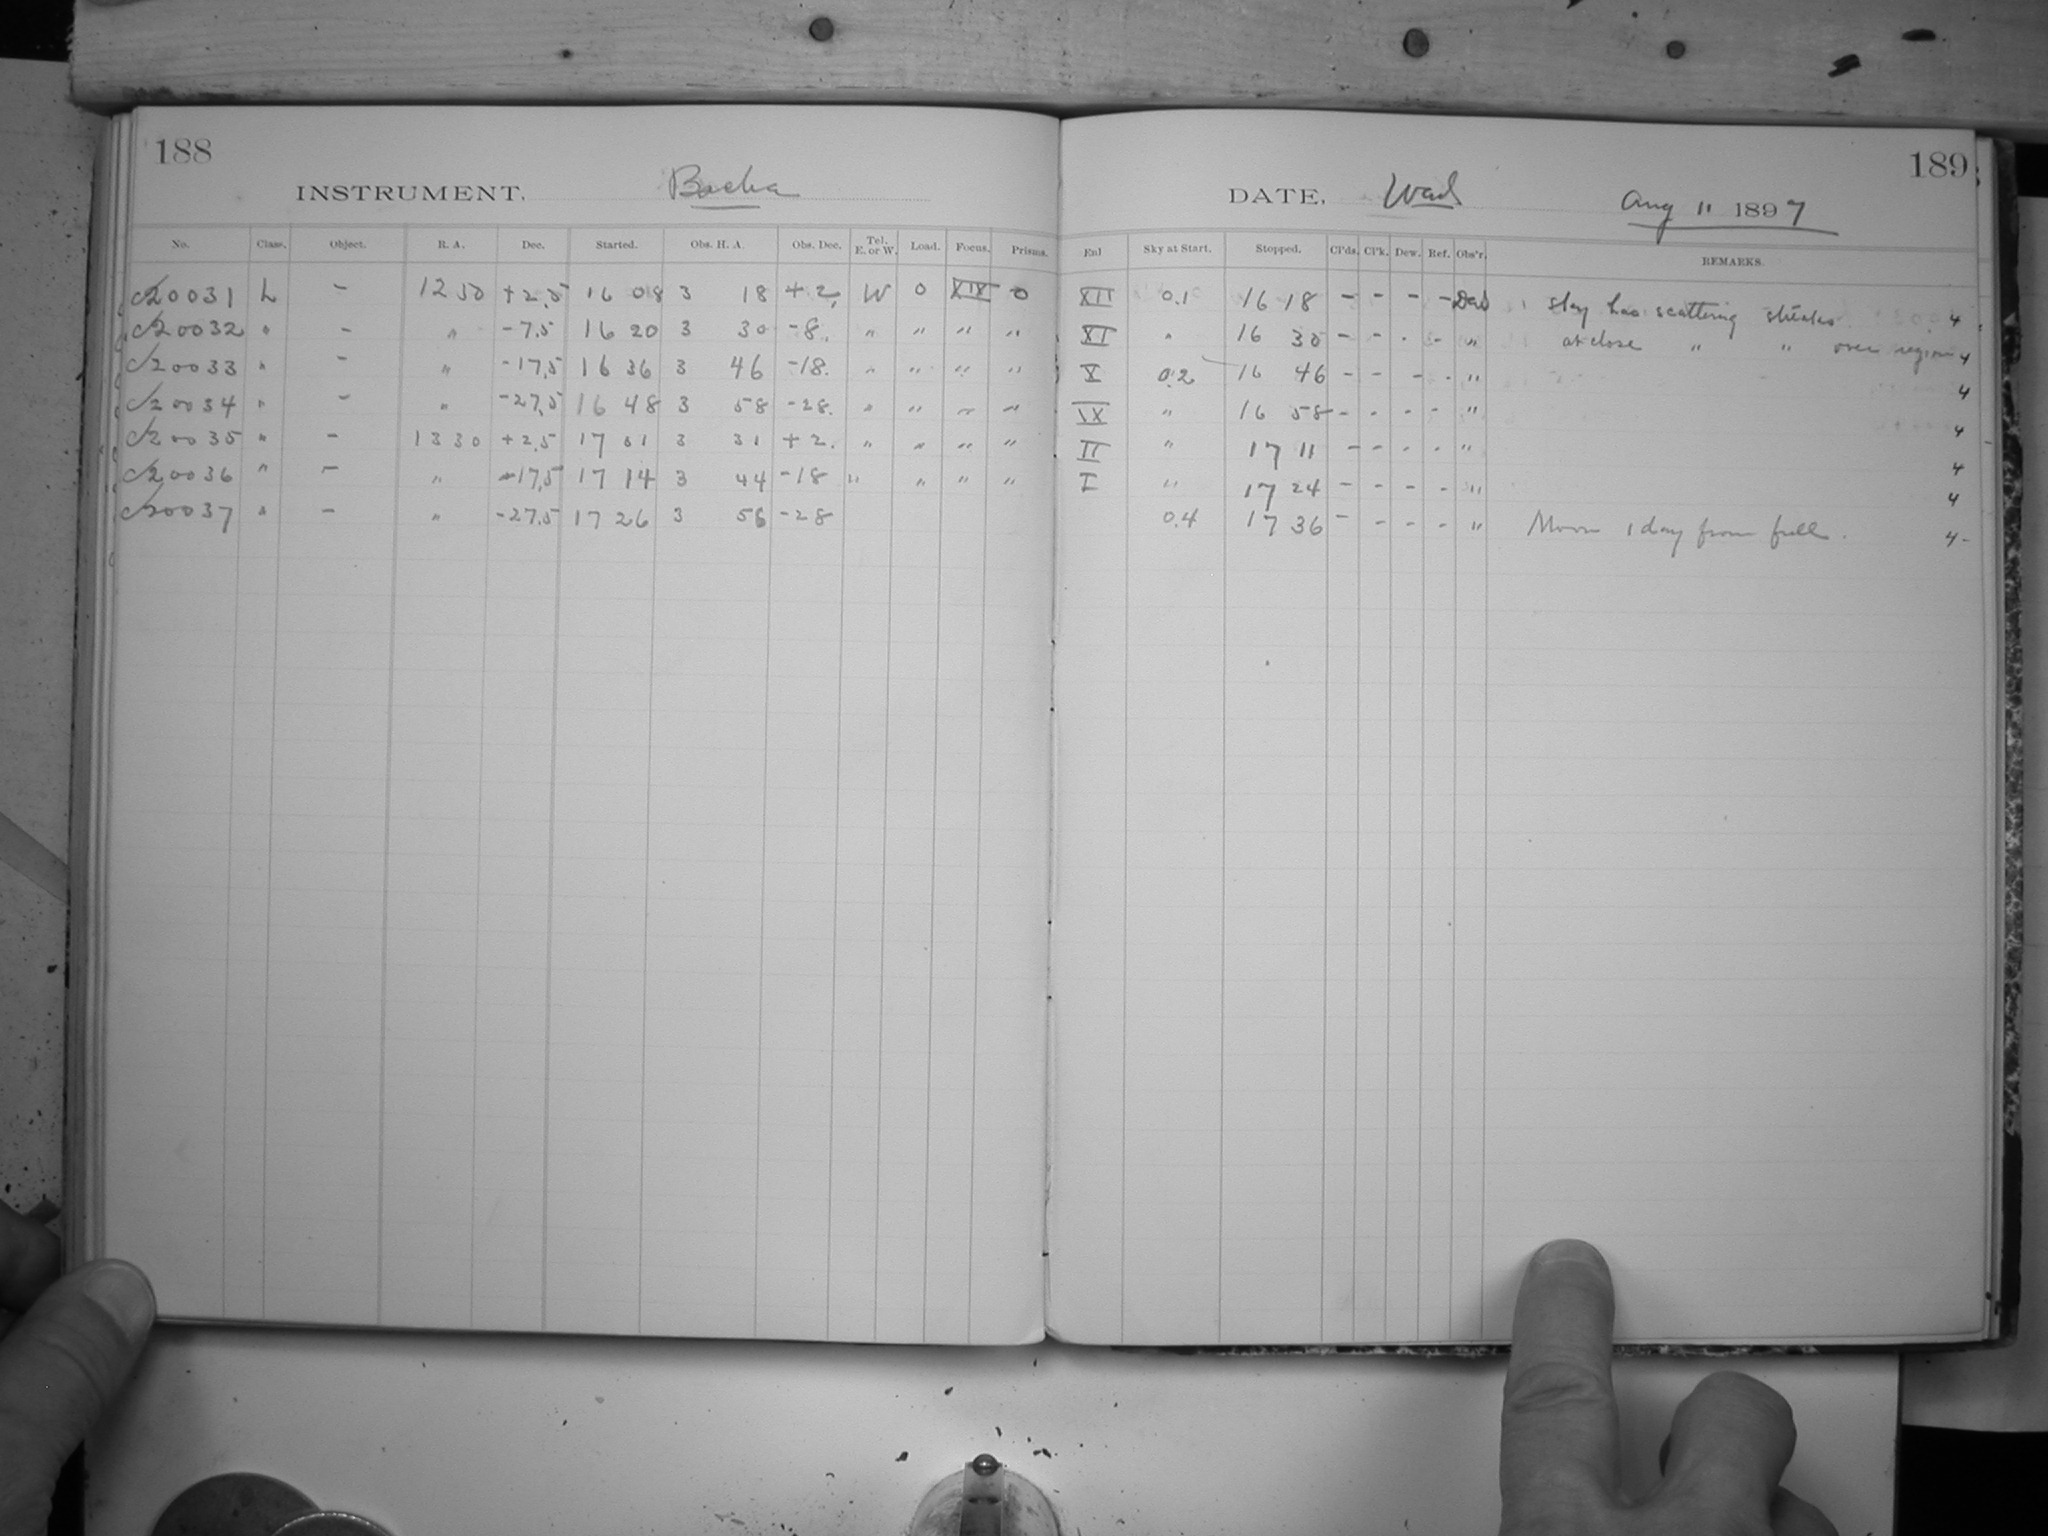 188
INSTRUMENT. Bache
No. Class. Object. R. A. Dec. Started. Obs. H. A. Obs. Dec. Tel. E. or W. Load. Focus. Prisms.
20031 L - 12 50 +2,5 16 08 3 18 +2, W 0 XIII 0
20032 " - " -7,5 16 20 3 30 -8, " " " "
20033 " - " -17,5 16 36 3 46 -18. " " " "
20034 " - " -27,5 16 48 3 58 -28. " " " "
20035 " - 13 30 +2,5 17 01 3 31 +2. " " " "
20036 " - " -17,5 17 14 3 44 -18 " " " "
20037 " - " -27,5 17 26 3 56 -28
189
DATE. Wed Aug 11 1897
Enl Sky at Start. Stopped. Cl'ds. Cl'k. Dew. Ref. Obs'r. REMARKS.
XII 0.1 16 18 - - - - sky has scattering streaks 4
XI " 16 30 - - - - " at close " " over region 4
X 0.2 16 46 - - - - " 4
IX " 16 58 - - - - " 4
II " 17 11 - - - - " 4
I " 17 24 - - - - " 4
0.4 17 36 - - - - " Moon 1 day from full. 4